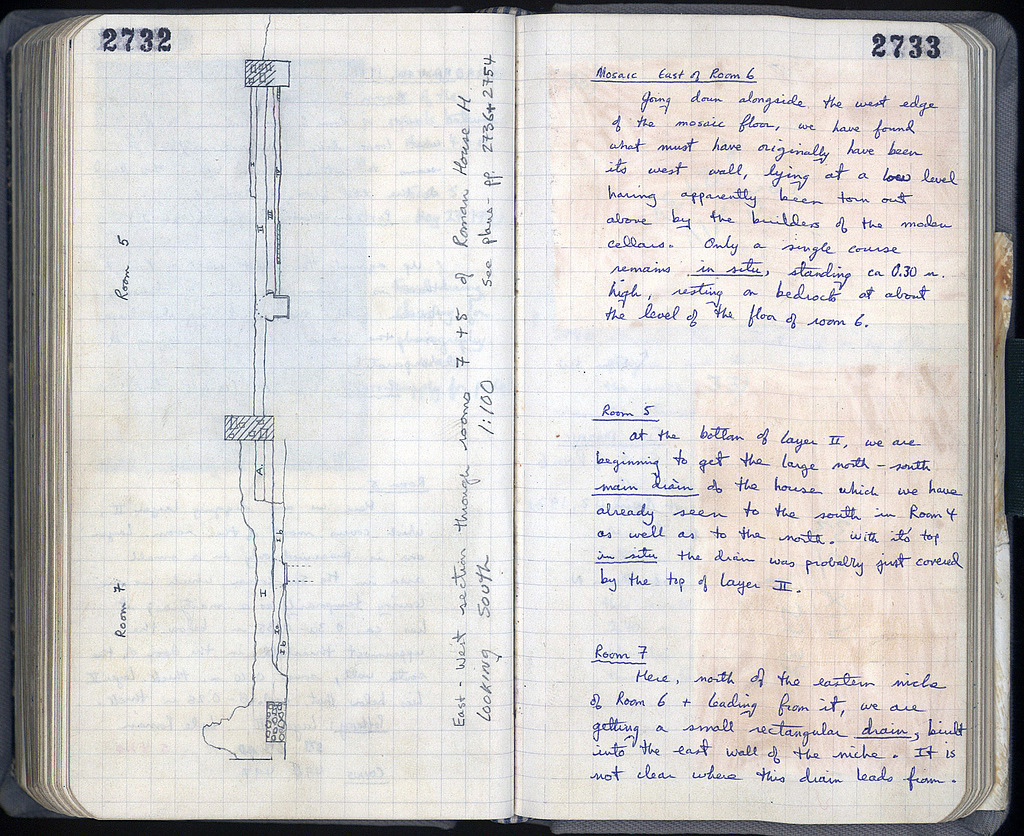 2732
Room 5
Room 7
I
II
III
IV
A.
I
Ib
Ic
Ib
East-West section through rooms 7 + 5 of Roman House H
Looking South 1:100 see plans - pp. 2736 + 2754
2733
Mosaic East of Room 6
Going down alongside the west edge
of the mosaic floor, we have found
what must have originally have been
its west wall, lying at a low level
having apparently been torn out
above by the builders of the modern
cellars. Only a single course
remains in situ, standing ca 0.30 m.
high, resting on bedrock at about
the level of the floor of room 6.
Room 5
At the bottom of layer II, we are
beginning to get the large north-south
main drain of the house which we have
already seen to the south in Room 4
as well as to the north. With it's top
in situ the drain was probably just covered
by the top of layer II.
Room 7
Here, north of the eastern niche
of Room 6 + leading from it, we are
getting a small rectangular drain, built
into the east wall of the niche. It is
not clear where this drain leads from.